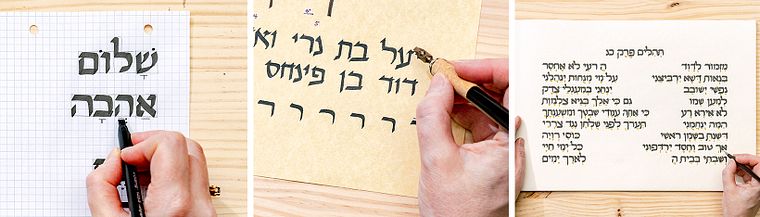 שָׁלוֹם
אַהֲבָה
על בת נרי וא
דוד בן פינחס
ר ר ר ר ר ר
תהלים פרק כג
מזמור לדוד ה רעי לא אחסר
בנאות דשא ירביצני על מי מנחות ינהלני
נפשי ישובב ינחני במעגלי צדק
למען שמו גם כי אלך בגיא צלמות
לא אירא רע כי אתה עמדי שבטך ומשענתך
המה ינחמני תערך לפני שלחן נגד צררי
דשנת בשמן ראשי כוסי רויה
אך טוב וחסד ירדפוני כל ימי חיי
ושבתי בבית ה לארך ימים